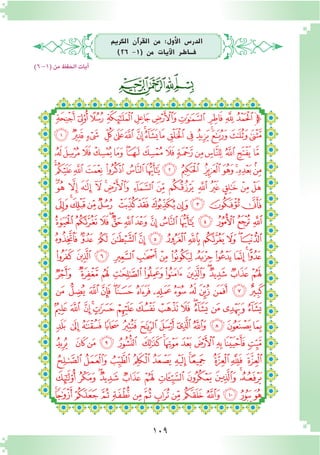 الدرس الأول: من القرآن الكريم
فاطر الآيات من (١- ٢٦)
آيات الحفظ من (١- ٦)
بِسْمِ اللَّهِ الرَّحْمَٰنِ الرَّحِيمِ
﴿ الْحَمْدُ لِلَّهِ فَاطِرِ السَّمَاوَاتِ وَالْأَرْضِ جَاعِلِ الْمَلَائِكَةِ رُسُلًا أُولِي أَجْنِحَةٍ
مَثْنَىٰ وَثُلَاثَ وَرُبَاعَ يَزِيدُ فِي الْخَلْقِ مَا يَشَاءُ إِنَّ اللَّهَ عَلَىٰ كُلِّ شَيْءٍ قَدِيرٌ ١
مَا يَفْتَحِ اللَّهُ لِلنَّاسِ مِنْ رَحْمَةٍ فَلَا مُمْسِكَ لَهَا وَمَا يُمْسِكْ فَلَا مُرْسِلَ لَهُ
مِنْ بَعْدِهِ وَهُوَ الْعَزِيزُ الْحَكِيمُ ٢ يَا أَيُّهَا النَّاسُ اذْكُرُوا نِعْمَتَ اللَّهِ عَلَيْكُمْ
هَلْ مِنْ خَالِقٍ غَيْرُ اللَّهِ يَرْزُقُكُمْ مِنَ السَّمَاءِ وَالْأَرْضِ لَا إِلَٰهَ إِلَّا هُوَ
فَأَنَّىٰ تُؤْفَكُونَ ٣ وَإِنْ يُكَذِّبُوكَ فَقَدْ كُذِّبَتْ رُسُلٌ مِنْ قَبْلِكَ وَإِلَى
اللَّهِ تُرْجَعُ الْأُمُورُ ٤ يَا أَيُّهَا النَّاسُ إِنَّ وَعْدَ اللَّهِ حَقٌّ فَلَا تَغُرَّنَّكُمُ الْحَيَاةُ
الدُّنْيَا وَلَا يَغُرَّنَّكُمْ بِاللَّهِ الْغَرُورُ ٥ إِنَّ الشَّيْطَانَ لَكُمْ عَدُوٌّ فَاتَّخِذُوهُ
عَدُوًّا إِنَّمَا يَدْعُو حِزْبَهُ لِيَكُونُوا مِنْ أَصْحَابِ السَّعِيرِ ٦ الَّذِينَ كَفَرُوا
لَهُمْ عَذَابٌ شَدِيدٌ وَالَّذِينَ آمَنُوا وَعَمِلُوا الصَّالِحَاتِ لَهُمْ مَغْفِرَةٌ وَأَجْرٌ
كَبِيرٌ ٧ أَفَمَنْ زُيِّنَ لَهُ سُوءُ عَمَلِهِ فَرَآهُ حَسَنًا فَإِنَّ اللَّهَ يُضِلُّ مَنْ
يَشَاءُ وَيَهْدِي مَنْ يَشَاءُ فَلَا تَذْهَبْ نَفْسُكَ عَلَيْهِمْ حَسَرَاتٍ إِنَّ اللَّهَ عَلِيمٌ
بِمَا يَصْنَعُونَ ٨ وَاللَّهُ الَّذِي أَرْسَلَ الرِّيَاحَ فَتُثِيرُ سَحَابًا فَسُقْنَاهُ إِلَىٰ بَلَدٍ
مَيِّتٍ فَأَحْيَيْنَا بِهِ الْأَرْضَ بَعْدَ مَوْتِهَا كَذَٰلِكَ النُّشُورُ ٩ مَنْ كَانَ يُرِيدُ
الْعِزَّةَ فَلِلَّهِ الْعِزَّةُ جَمِيعًا إِلَيْهِ يَصْعَدُ الْكَلِمُ الطَّيِّبُ وَالْعَمَلُ الصَّالِحُ
يَرْفَعُهُ وَالَّذِينَ يَمْكُرُونَ السَّيِّئَاتِ لَهُمْ عَذَابٌ شَدِيدٌ وَمَكْرُ أُولَٰئِكَ
هُوَ يَبُورُ ١٠ وَاللَّهُ خَلَقَكُمْ مِنْ تُرَابٍ ثُمَّ مِنْ نُطْفَةٍ ثُمَّ جَعَلَكُمْ أَزْوَاجًا
١٠٩